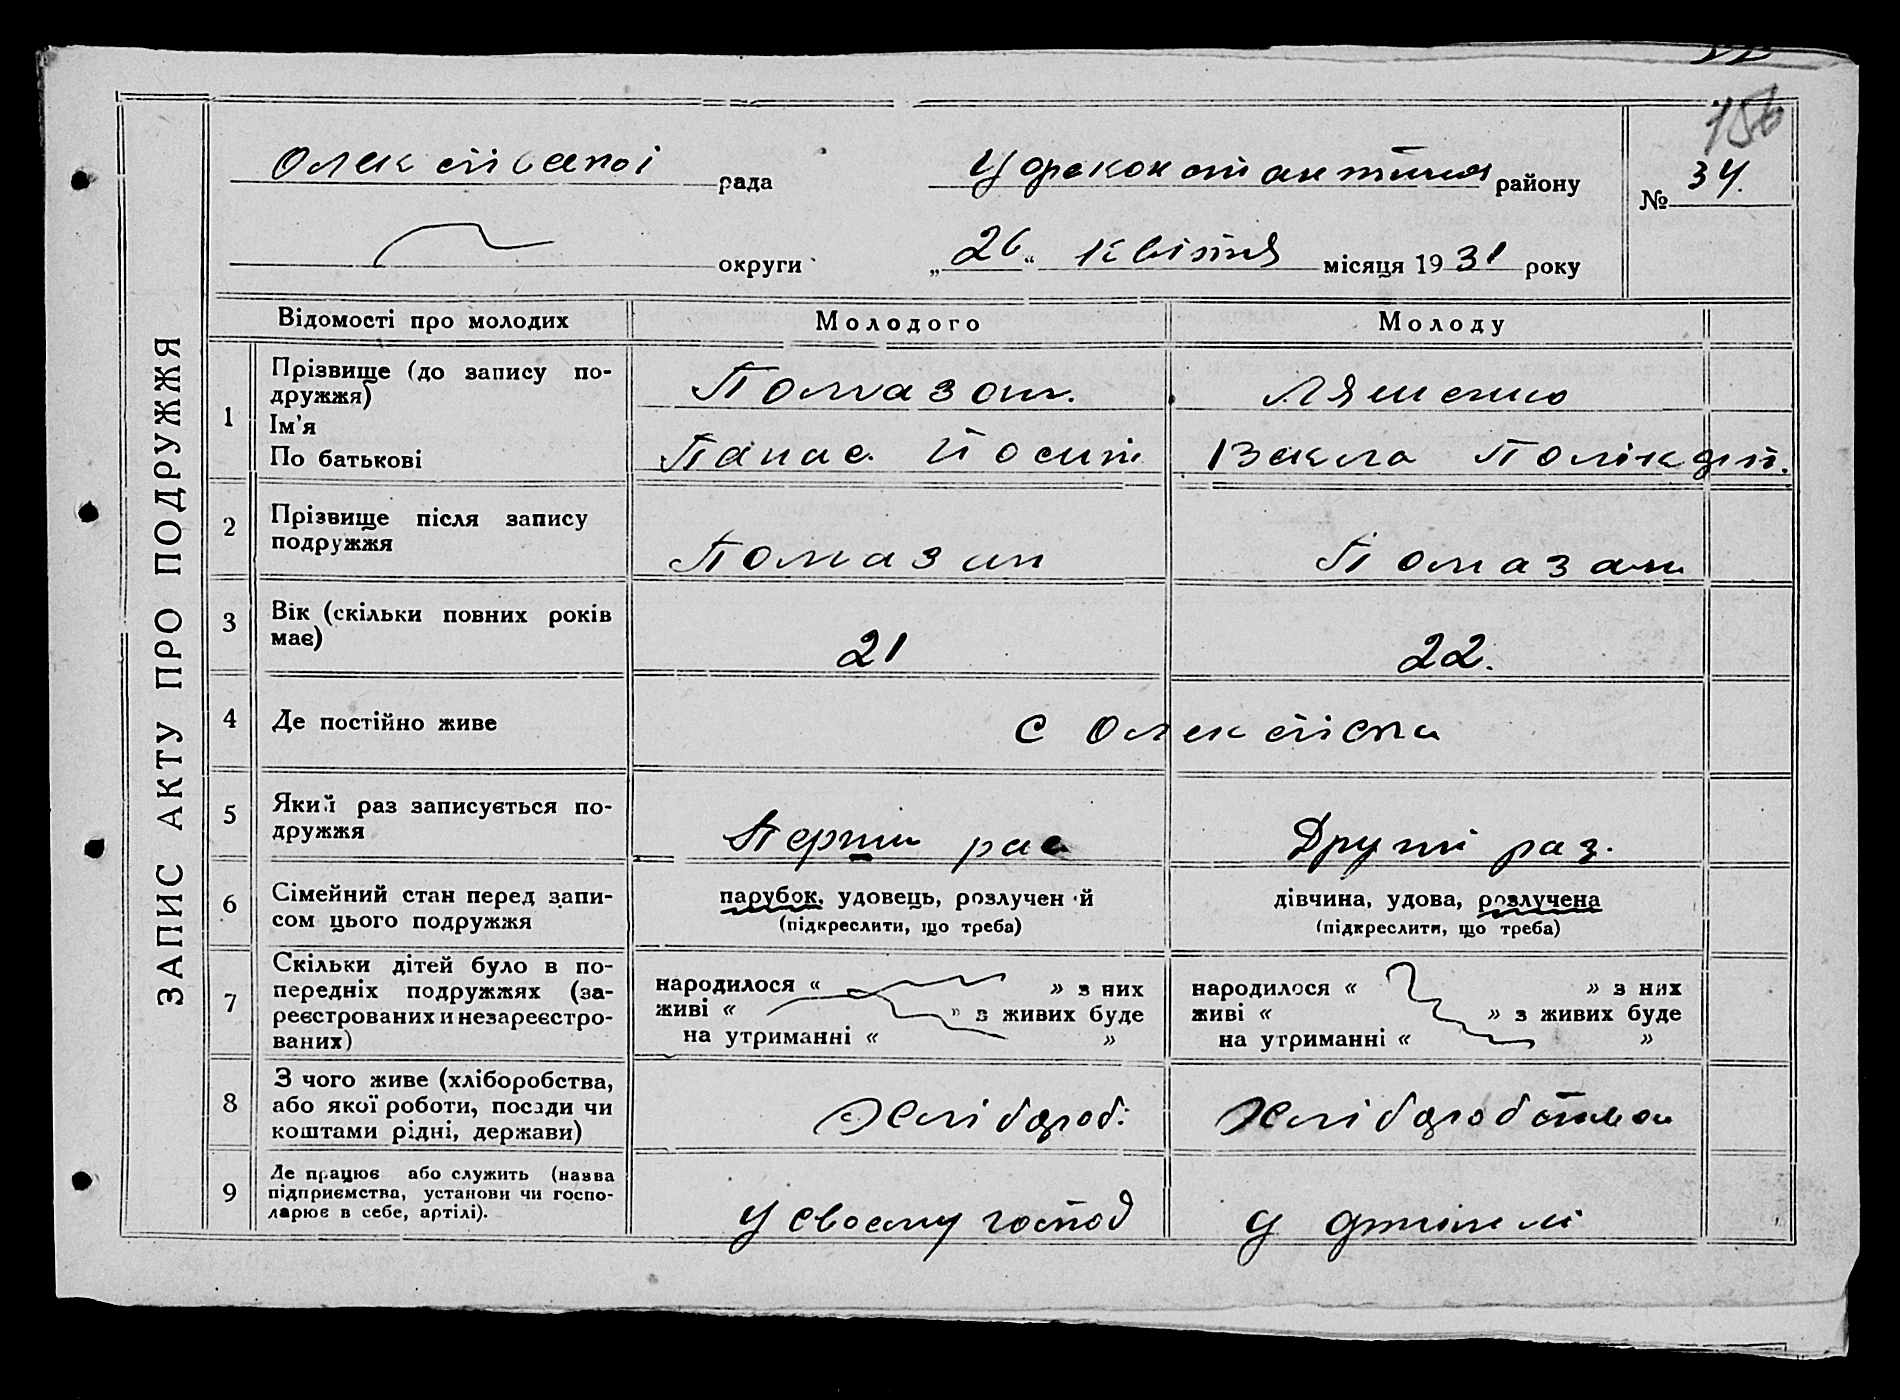 156
Олексіївської рада
Царекостянтинів району
№ 34.
округи
„ 26 “ квітня місяця 1931 року
ЗАПИС АКТУ ПРО ПОДРУЖЖЯ
Відомості про молодих Молодого Молоду
1 Прізвище (до запису по-
дружжя)
Ім'я
По батькові
Помазан. Ляшенко
Панас Йосип. Векла Полікарп.
2 Прізвище після запису
подружжя
Помазан Помазан
3 Вік (скільки повних років
має)
21 22.
4 Де постійно живе
с Олексіївка
5 Який раз записується по-
дружжя
Перши раз Другий раз.
6 Сімейний стан перед запи-
сом цього подружжя
парубок, удовець, розлучен й
(підкреслити, що треба)
дівчина, удова, розлучена
(підкреслити, що треба)
7 Скільки дітей було в по-
передніх подружжях (за-
реєстрованих и незареєстро-
ваних)
народилося “ ” з них
живі “ ” з живих буде
на утриманні “ ”
народилося “ ” з них
живі “ ” з живих буде
на утриманні “ ”
8 З чого живе (хліборобства,
або якої роботи, посади чи
коштами рідні, держави)
Хлібороб: Хліборобства
9 Де працює або служить (назва
підприємства, установи чи госпо-
дарює в себе, артілі).
У своему господ у артілі